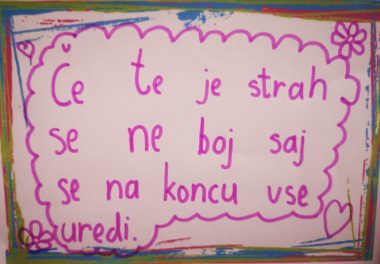 Če te je strah
se ne boj saj
se na koncu vse
uredi.